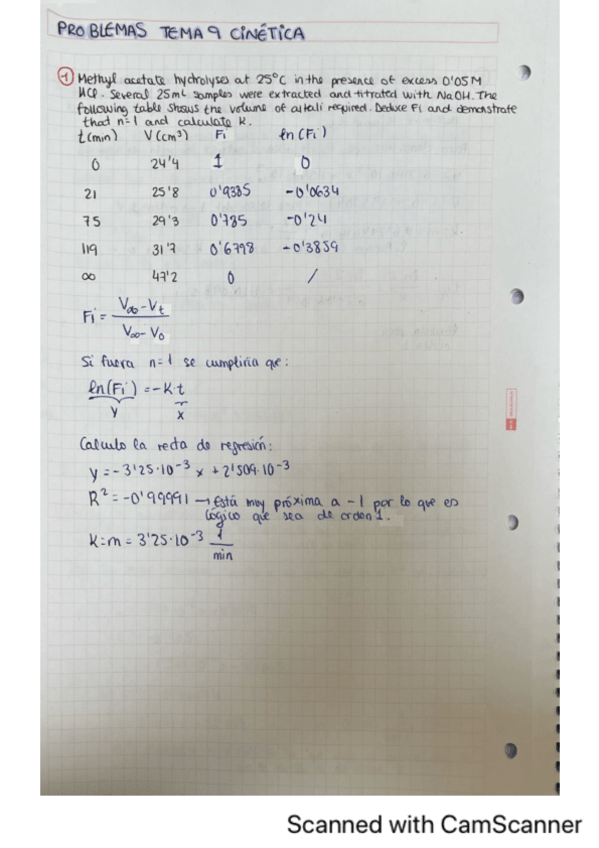 PROBLEMAS TEMA 9 CINÉTICA
1 Methyl acetate hydrolyses at 25°C in the presence of excess 0'05M
HCl. Several 25mL samples were extracted and titrated with NaOH. The
following table shows the volume of alkali required. Deduce Fi and demonstrate
that n=1 and calculate K.
t(min) V(cm³) Fi ln(Fi)
0 24'4 1 0
21 25'8 0'9385 -0'0634
75 29'3 0'785 -0'24
119 31'7 0'6798 -0'3859
∞ 47'2 0 /
Fi = V∞-Vt / V∞-V0
Si fuera n=1 se cumpliría que:
ln(Fi) = -K·t
y x
Calculo la recta de regresión:
y = -3'25·10⁻³ x + 2'509·10⁻³
R² = -0'99991 → Está muy próxima a -1 por lo que es
lógico que sea de orden 1.
K=m = 3'25·10⁻³ 1/min
Scanned with CamScanner